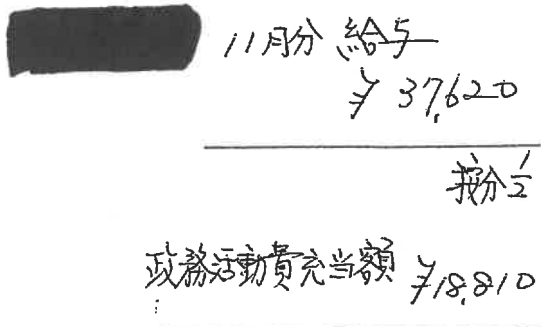 11月分 給与
¥37,620
按分 1/2
政務活動費充当額 ¥18,810